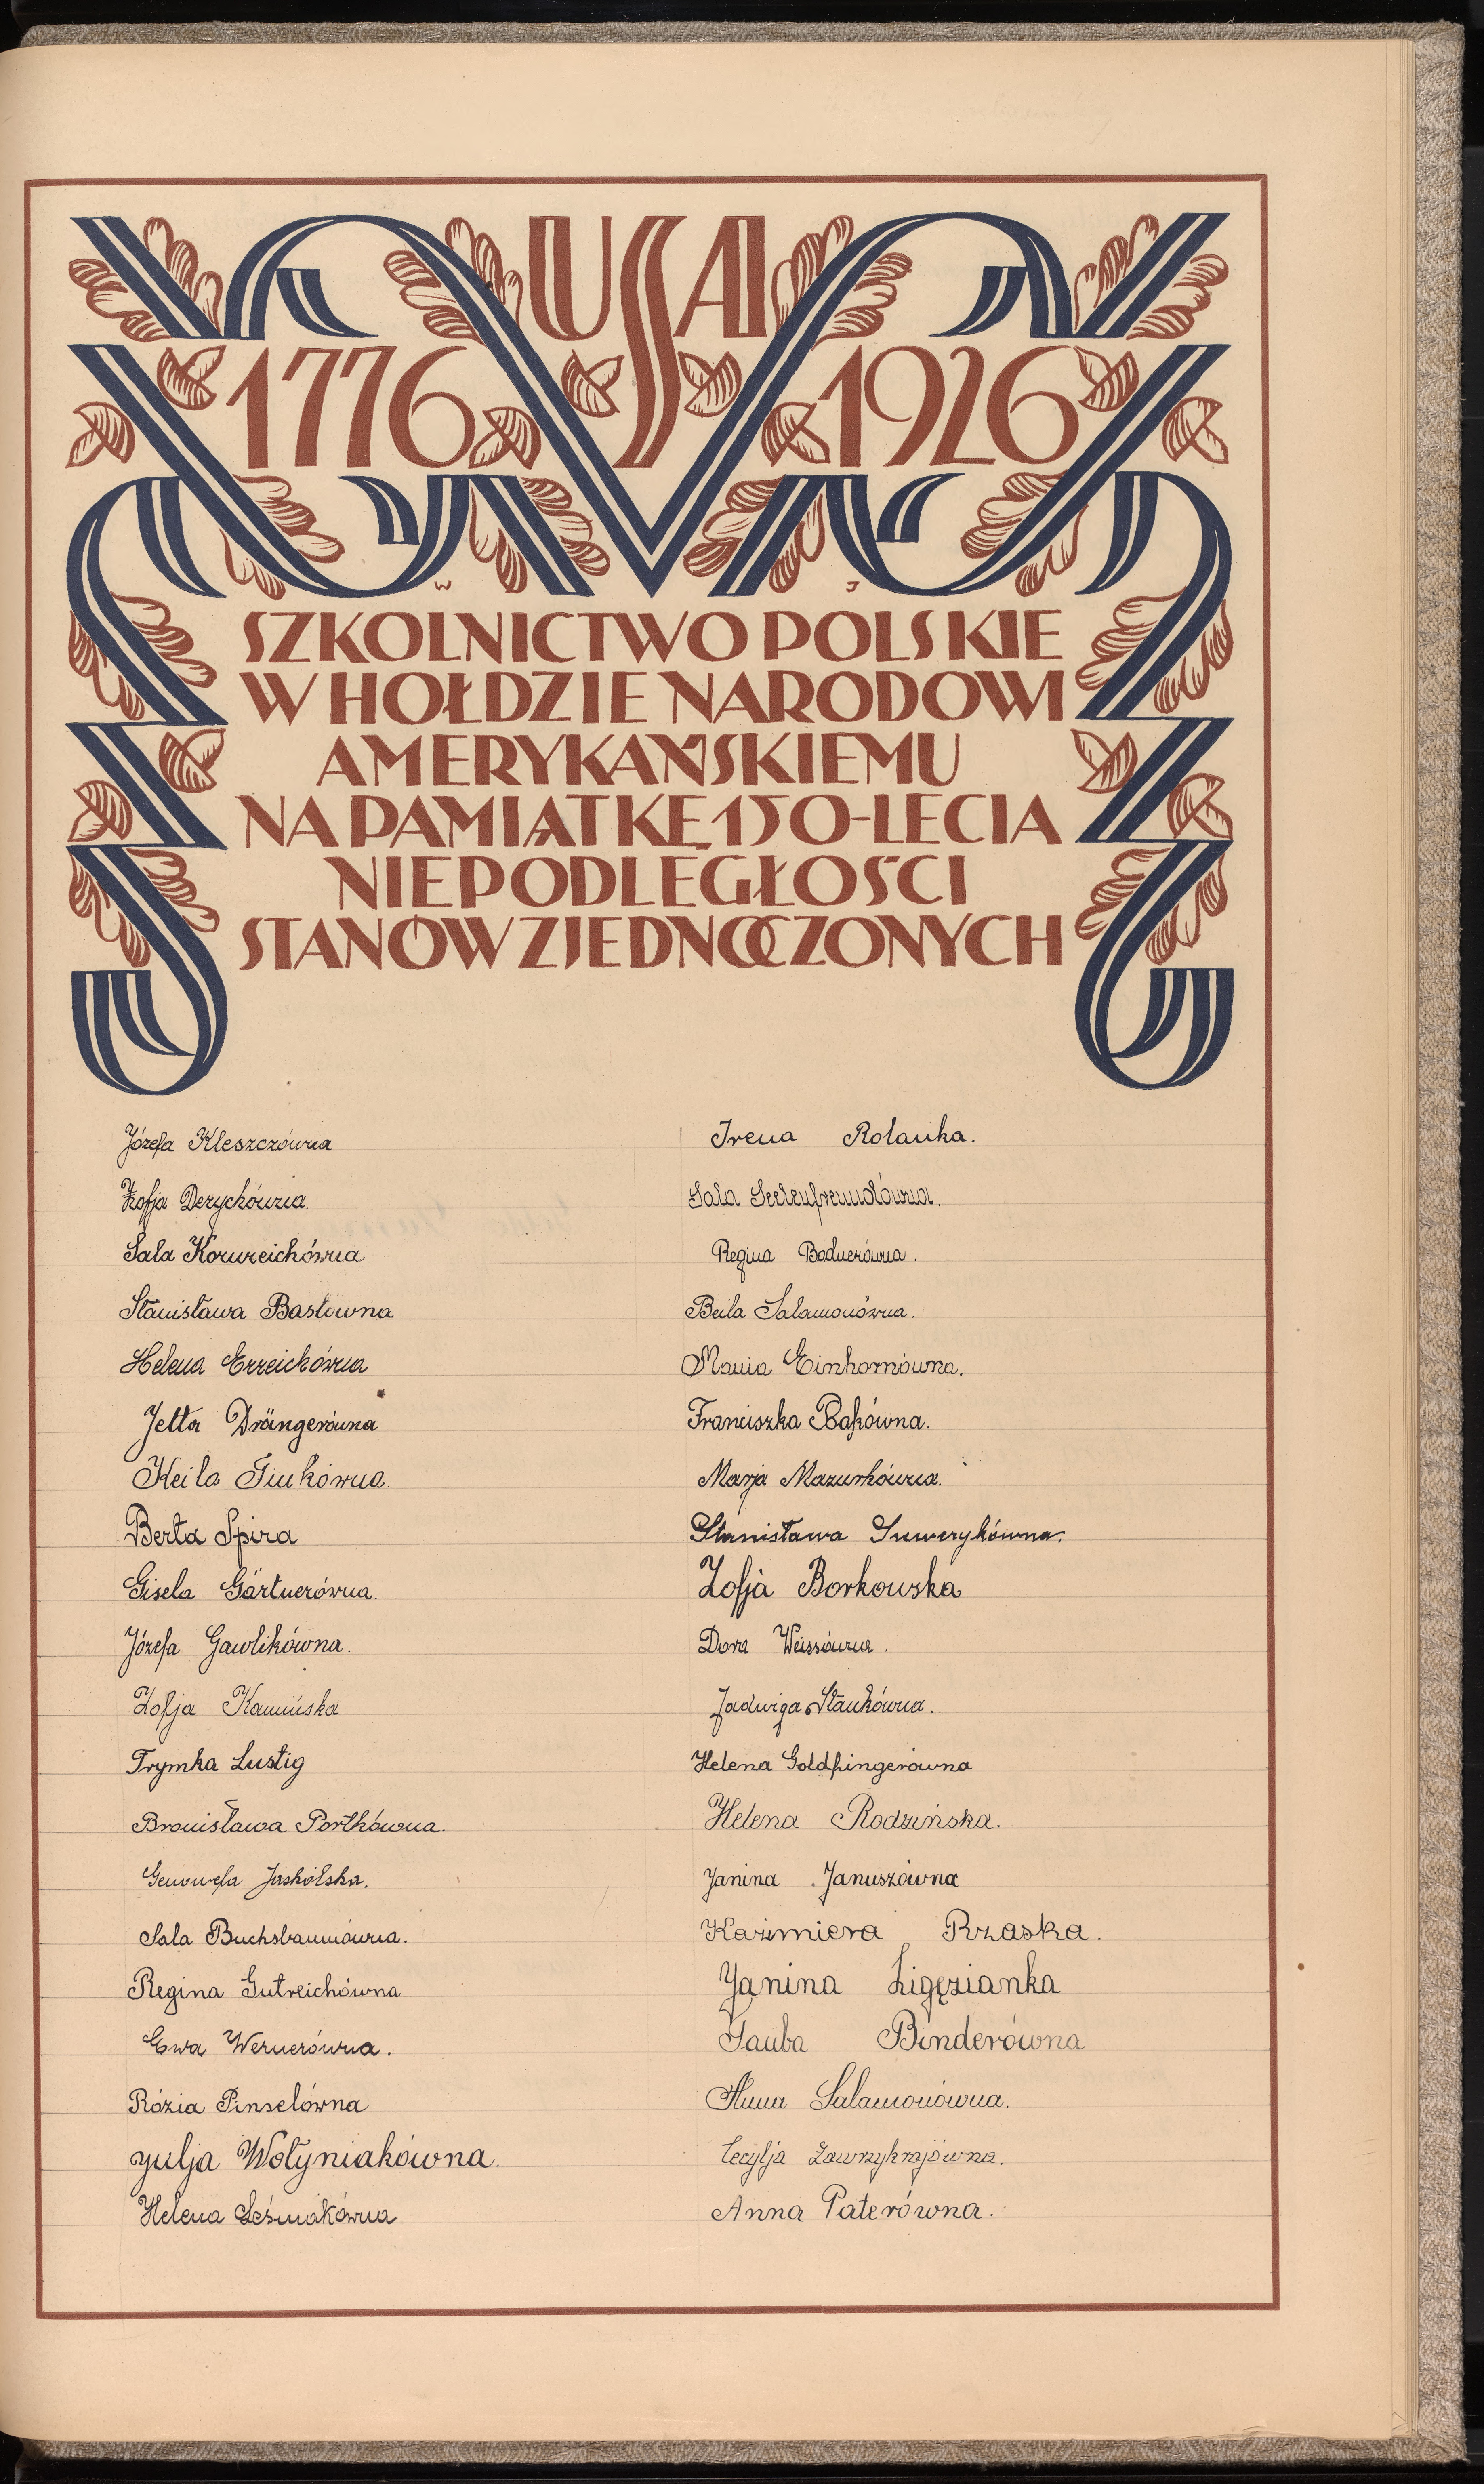 USA
1776 1926
W J
SZKOLNICTWO POLSKIE
W HOŁDZIE NARODOWI
AMERYKAŃSKIEMU
NA PAMIĄTKĘ 150-LECIA
NIEPODLEGŁOŚCI
STANÓW ZJEDNOCZONYCH
Józefa Kleszczówna
Zofja Derychówna.
Sala Kornreichówna
Stanisława Basłówna
Helena Erreichówna
Jetta Drängerówna
Keila Finkówna.
Berta Spira
Gisela Gärtnerówna.
Józefa Gawlikówna.
Zofja Kamińska
Frymka Lustig
Bronisława Portkówna.
Genowefa Jaskólska.
Sala Buchsbaumówna.
Regina Gutreichówna
Ewa Wernerówna.
Rózia Pinselówna
Julja Wołyniakówna.
Helena Leśniakówna
Irena Rolanka.
Sala Seelenfreundówna.
Regina Bodnerówna.
Beila Salamonówna.
Mania Einhornówna.
Franciszka Bąkówna.
Marja Mazurkówna.
Stanisława Suwerykówna.
Zofja Borkowska
Dora Weissówna.
Jadwiga Stankówna.
Helena Goldfingerówna
Helena Rodzińska.
Janina Januszówna
Kazimiera Rzaska.
Janina Ligęzianka
Tauba Binderówna
Anna Salamonówna.
Cecylja Zawrzykrajówna.
Anna Paterówna.